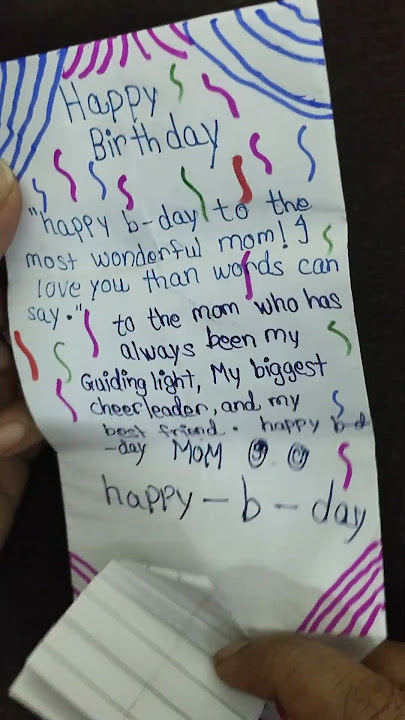 Happy
Birthday
"happy b-day to the
most wonderful mom! I
love you than words can
say."
to the mom who has
always been my
Guiding light, My biggest
cheerleader, and my
best friend. happy b-d
-day MOM
happy-b-day